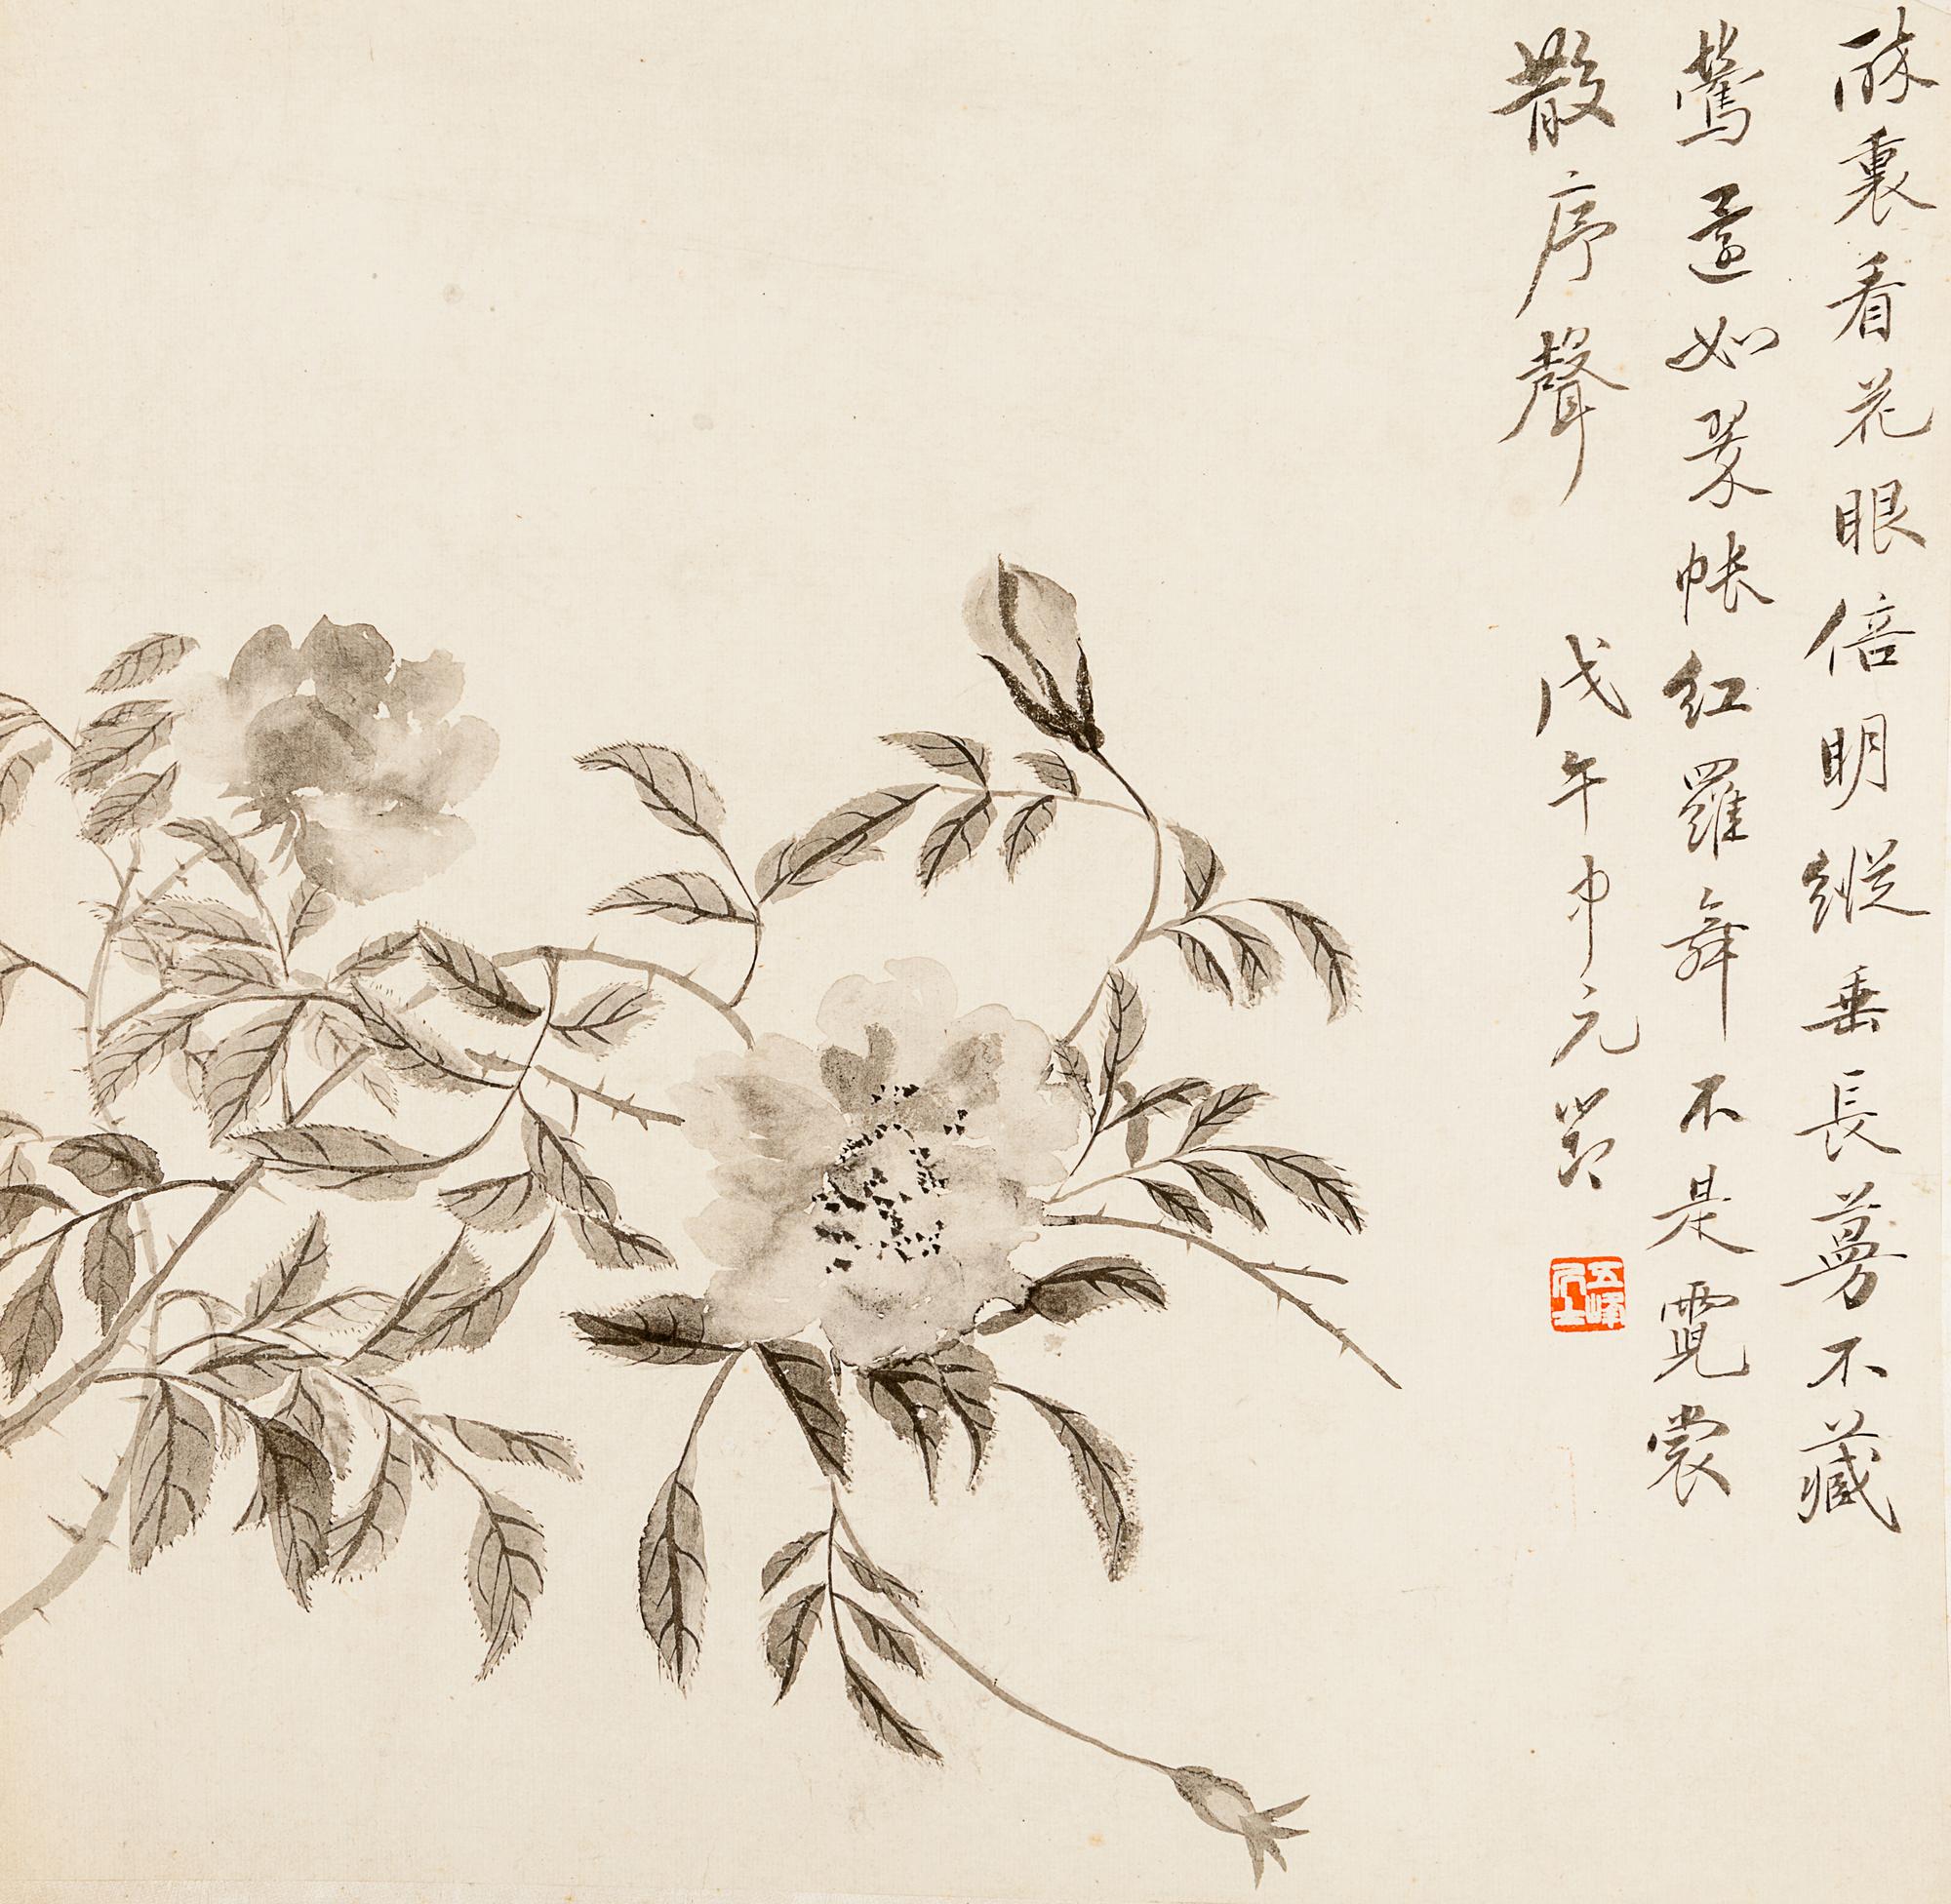 裏看花眼倍明縱垂長蔓不藏
鶯還如翠帳紅羅舞不是霓裳
散序聲 戊午中元節
五峰